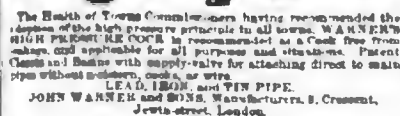 The Health of Towns Commissioners having recommended the
adoption of the high pressure principle in all towns, WARNER'S
HIGH PRESSURE COCK is recommended as a Cock free from
leakage, and applicable for all purposes and situations. Patent
Closets and Basins with supply-valve for attaching direct to main
pipes without cistern, cocks, or wire.
LEAD, IRON, and TIN PIPE.
JOHN WARNER and SONS, Manufacturers, 8, Crescent,
Jewin-street, London.